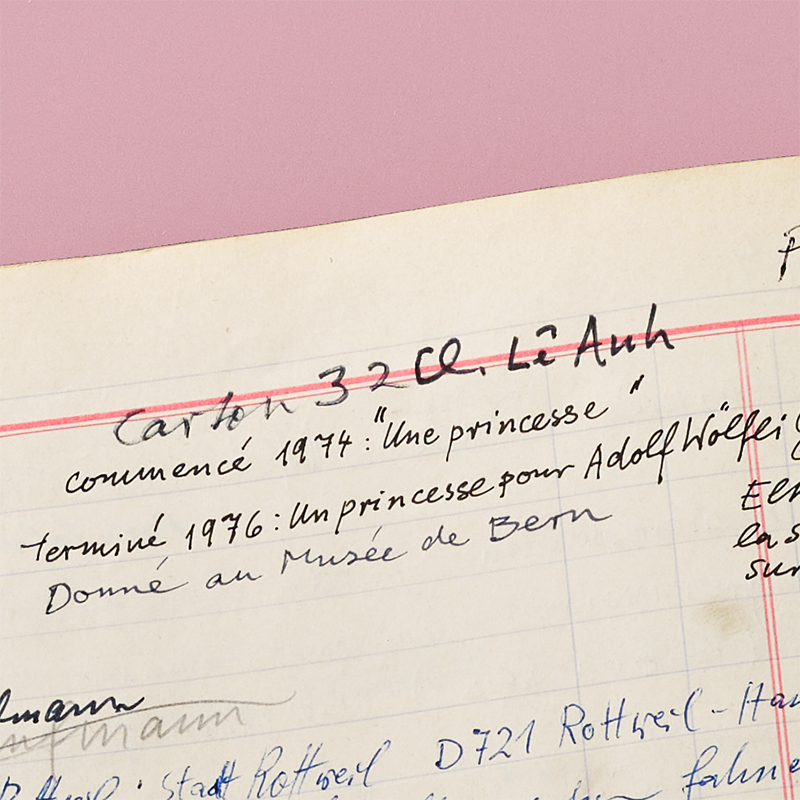 Carton 32 Cl. Lê Anh
commencé 1974 : "Une princesse"
Terminé 1976 : Un princesse pour Adolf Wölflei
Donné au Musée de Bern
la
sur
Stadt Rottweil D721 Rottweil -